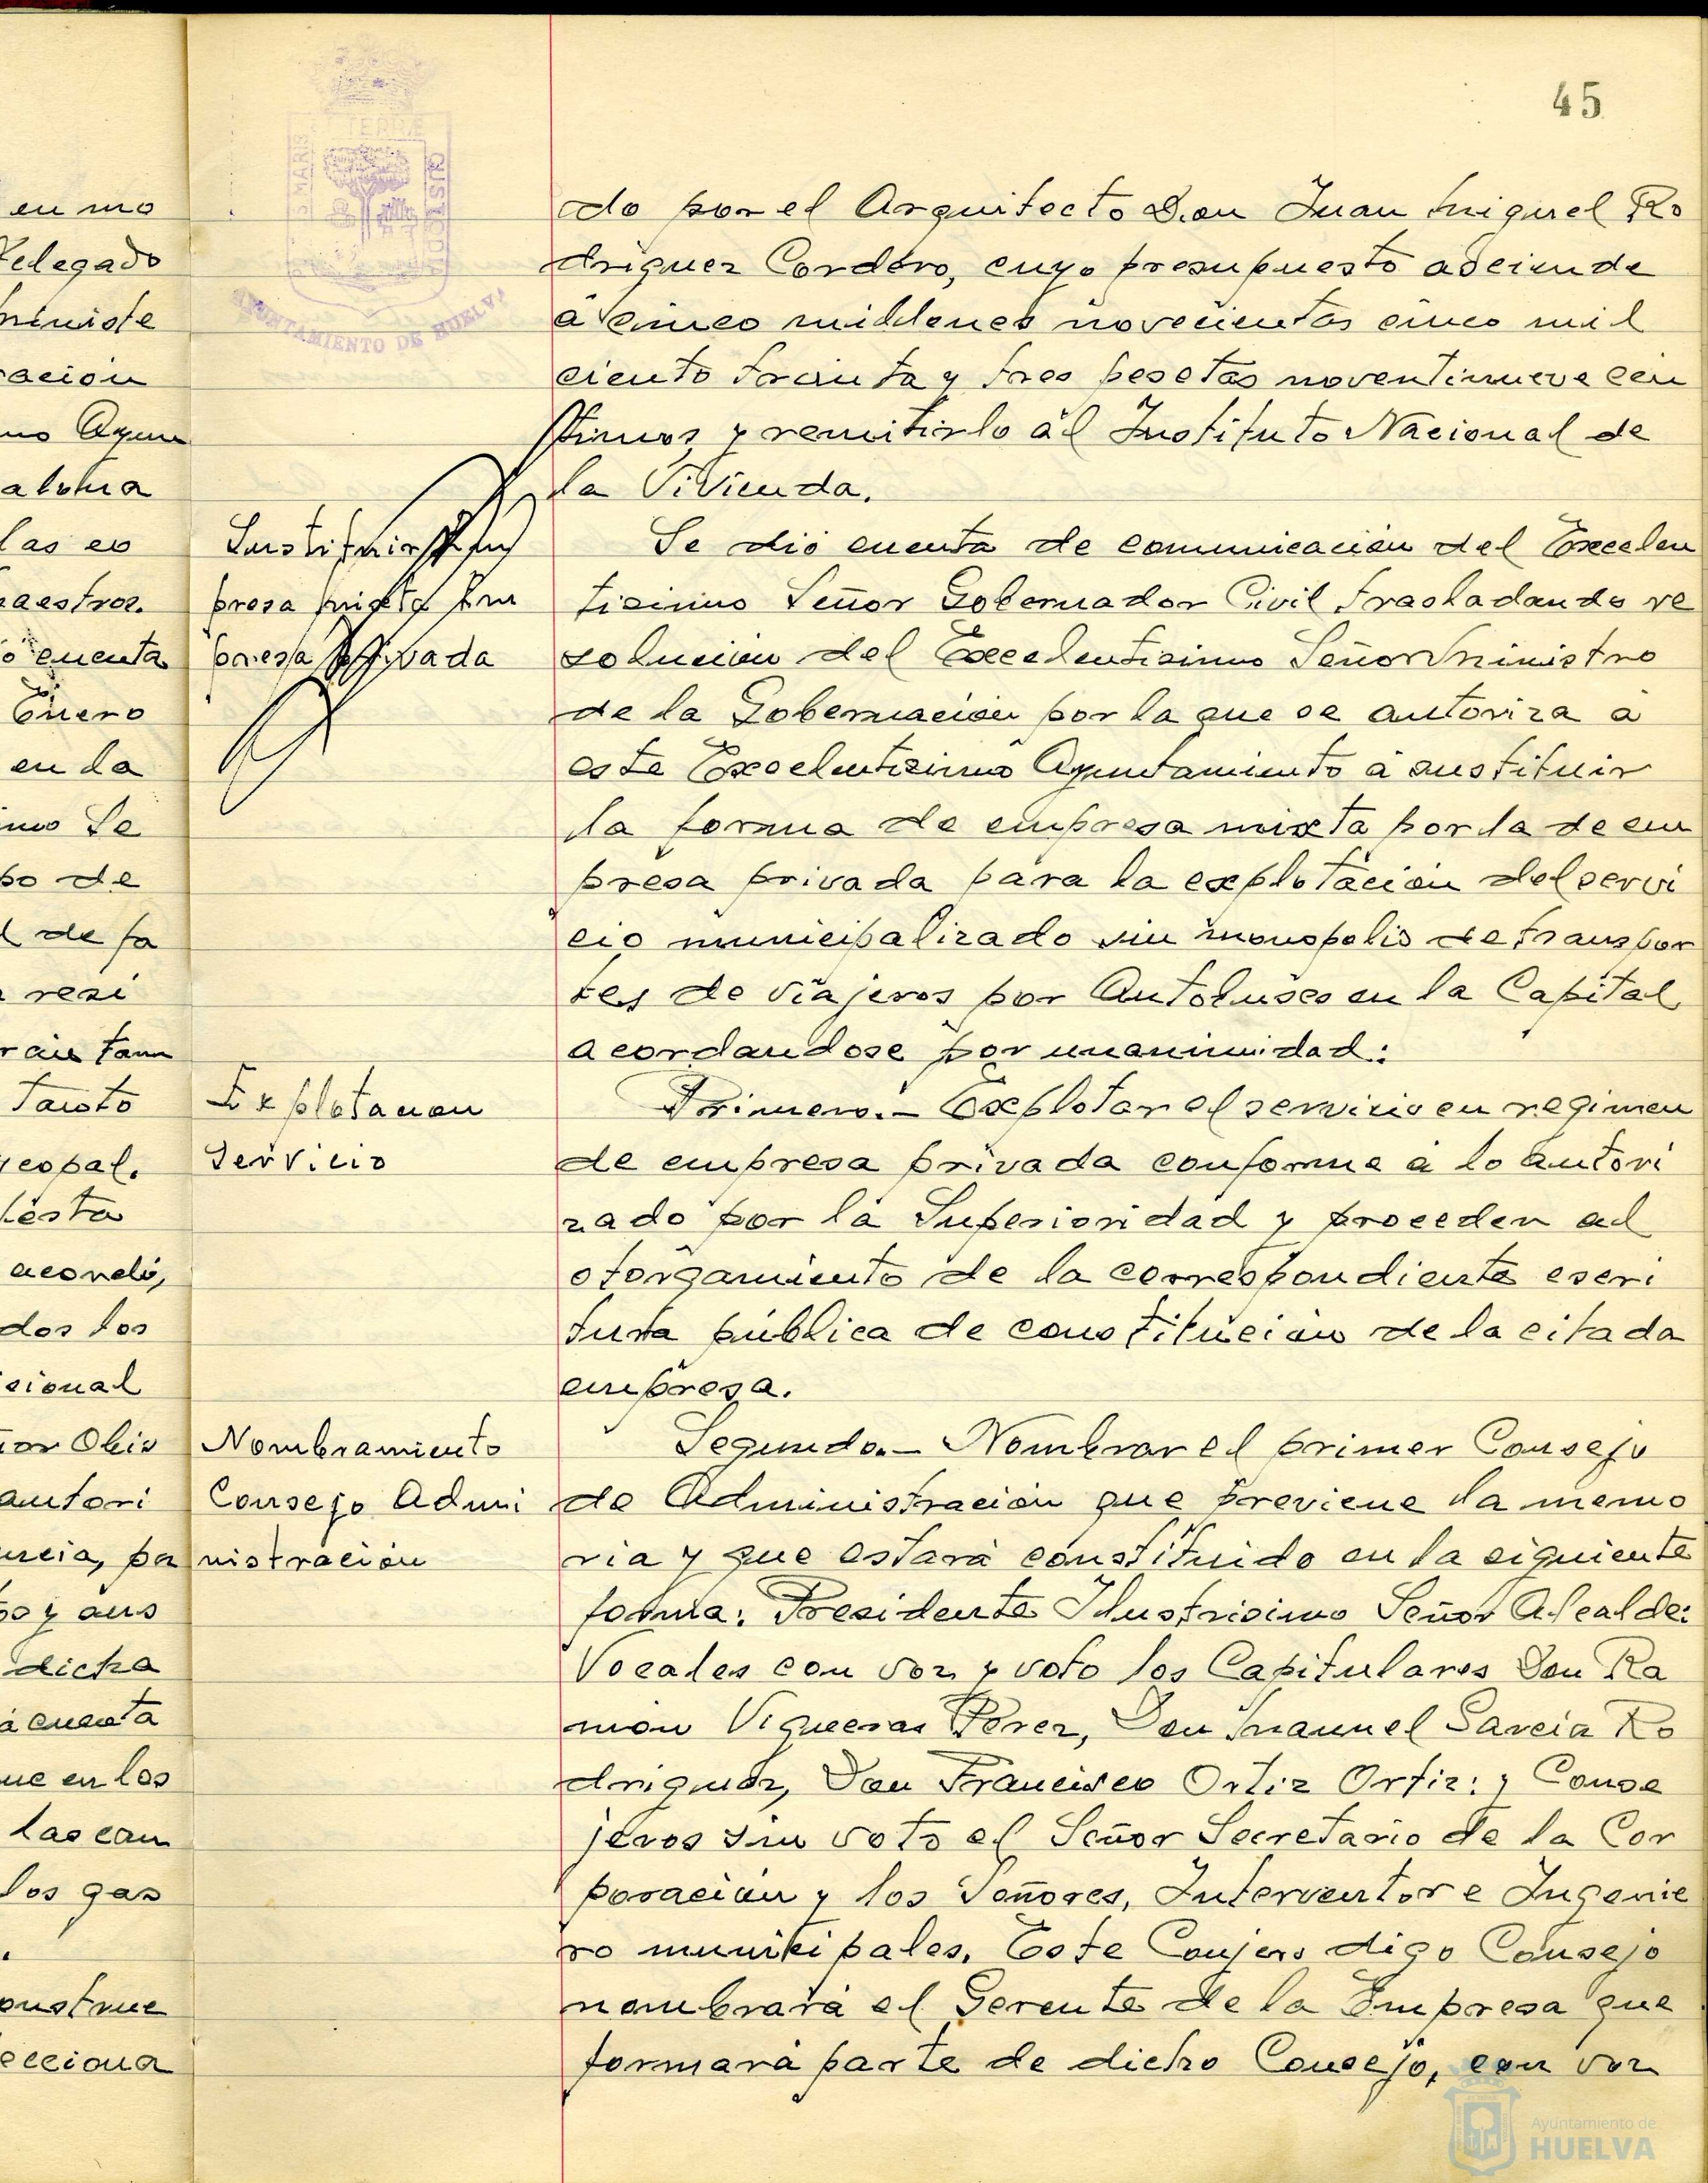 45
en mo
elegado
ministe
ración
mo Ayun
las es
maestros.
cuenta
Enero
en la
imo Se
po de
de fa
resi
Tanto
copal.
acordó,
dos los
cional
Obis
autori
dicha
cuenta
que en los
las con
los gas
construc
ecciona
TERRÆ
MARIS
CUSTODIA
AYUNTAMIENTO DE HUELVA
do por el Arquitecto Don Juan Miguel Ro
driguez Cordero, cuyo presupuesto asciende
a cinco millones novecientas cinco mil
ciento treinta y tres pesetas noventinueve cen
timos, y remitirlo al Instituto Nacional de
la Vivienda.
Sustituir Em
presa mixta Em
presa Privada
Se dió cuenta de comunicación del Excelen
tisimo Señor Gobernador Civil trasladando re
solucion del Excelentisimo Señor Ministro
de la Gobernación por la que se autoriza a
este Excelentisimo Ayuntamiento a sustituir
la forma de empresa mixta por la de em
presa privada para la explotación del servi
cio municipalizado sin monopolio de transpor
tes de viajeros por Autobuses en la Capital
acordandose por unanimidad:
Explotacion
Servicio
Primero.- Explotar el servicio en regimen
de empresa privada conforme a lo autori
zado por la Superioridad y proceder al
otorgamiento de la correspondiente escri
tura pública de constitución de la citada
empresa.
Nombramiento
Consejo Admi
nistración
Segundo.- Nombrar el primer Consejo
de Administración que previene la memo
ria y que estará constituido en la siguiente
forma: Presidente Ilustrisimo Señor Alcalde:
Vocales con voz y voto los Capitulares Don Ra
mon Vigueras Perez, Don Manuel Garcia Ro
driguez, Don Francisco Ortiz Ortiz: y Conse
jeros sin voto el Señor Secretario de la Cor
poración y los Señores, Interventor e Ingenie
ro municipales. Este Conjero digo Consejo
nombrará el Gerente de la Empresa que
formará parte de dicho Consejo, con voz
Ayuntamiento de
HUELVA